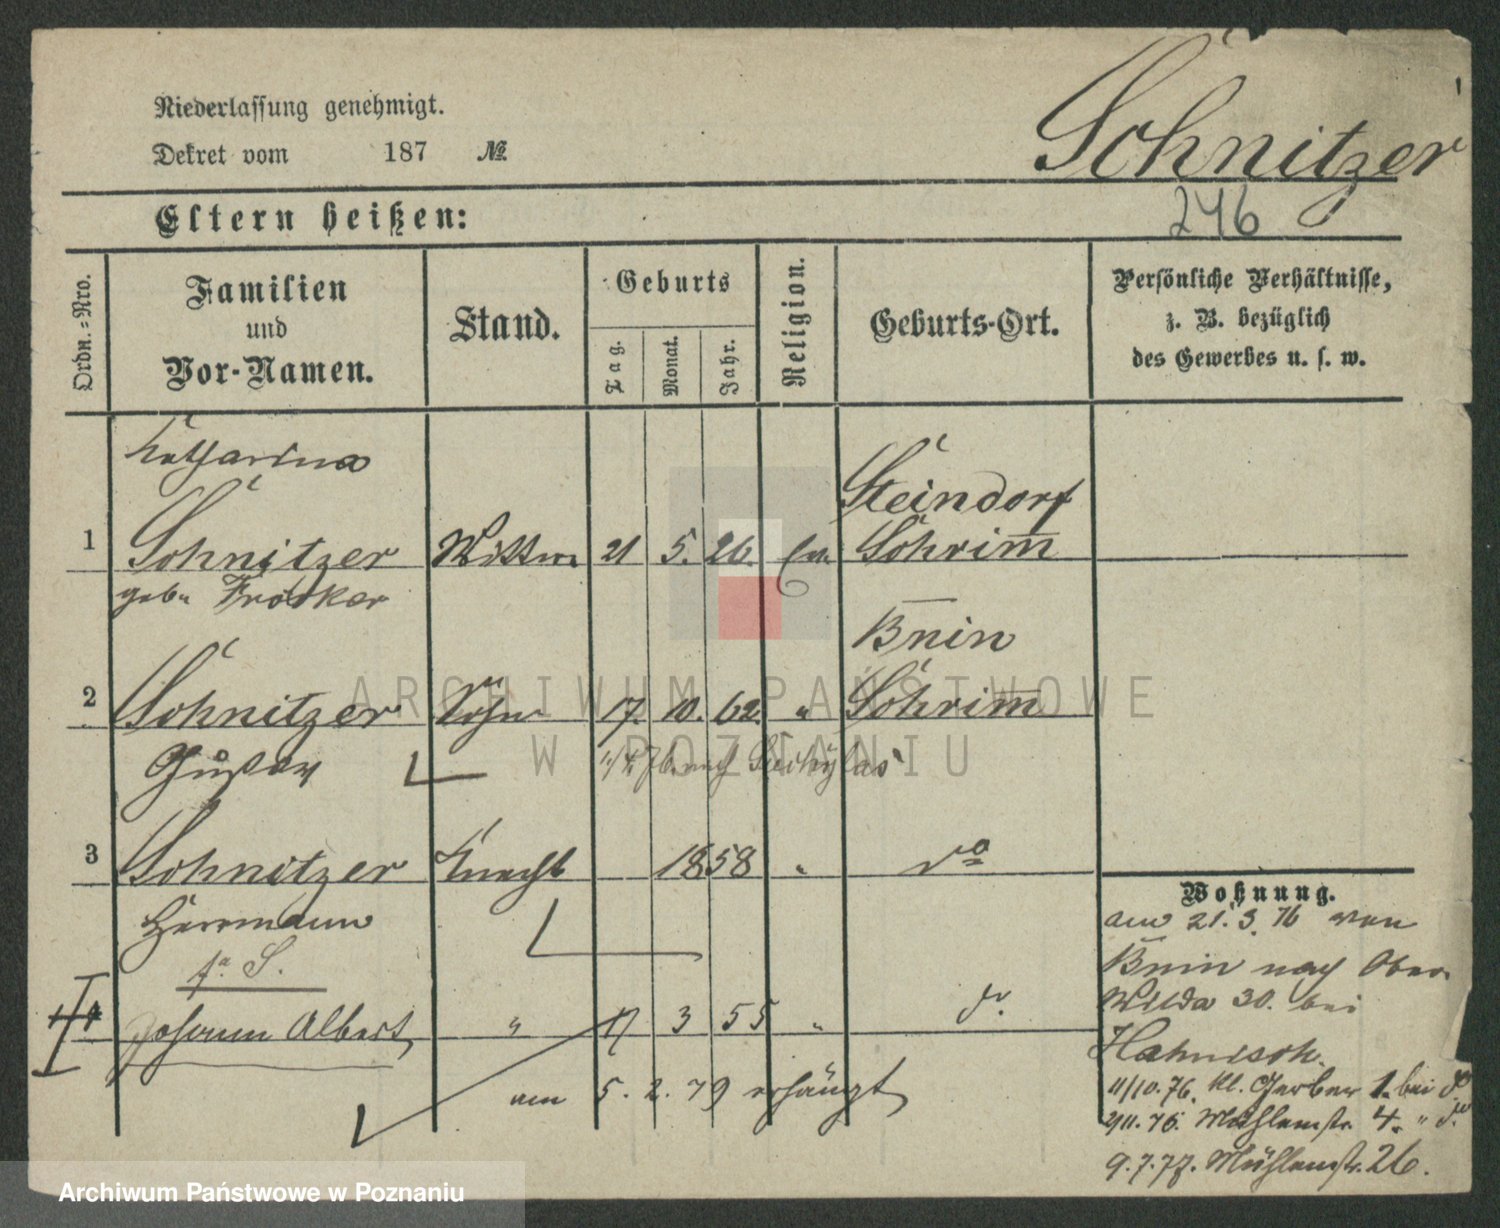 Schnitzer
Niederlassung genehmigt.
Dekret vom 187 №
246
Eltern heißen:
Ordn.=Nro.
Familien und Vor-Namen.
Stand.
Geburts
Tag.
Monat.
Jahr.
Religion.
Geburts-Ort.
Persönliche Verhältnisse,
z. B. bezüglich
des Gewerbes u. s. w.
Katharina
Steindorf
1 Schnitzer Wittwe 21 5. 26. Schrim̅
geb.
Bnin
2 Schnitzer Sohn 17. 10. 62. " Schrim̅
Gustav
3 Schnitzer Knecht 1858 " do
Herrmann
fa. S.
4 Johann Albert " 17 3 55 " do.
am 5. 2. 79 erhängt
Wohnung.
am 21. 3. 76 von
Bnin nach Ober
Wilda 30. bei
Hahnisch.
11/10. 76. Kl. Gerber 1. bei do
Mühlenstr. 4. " do
9. 7. 77. Mühlenstr. 26.
ARCHIWUM PAŃSTWOWE
W POZNANIU
Archiwum Państwowe w Poznaniu